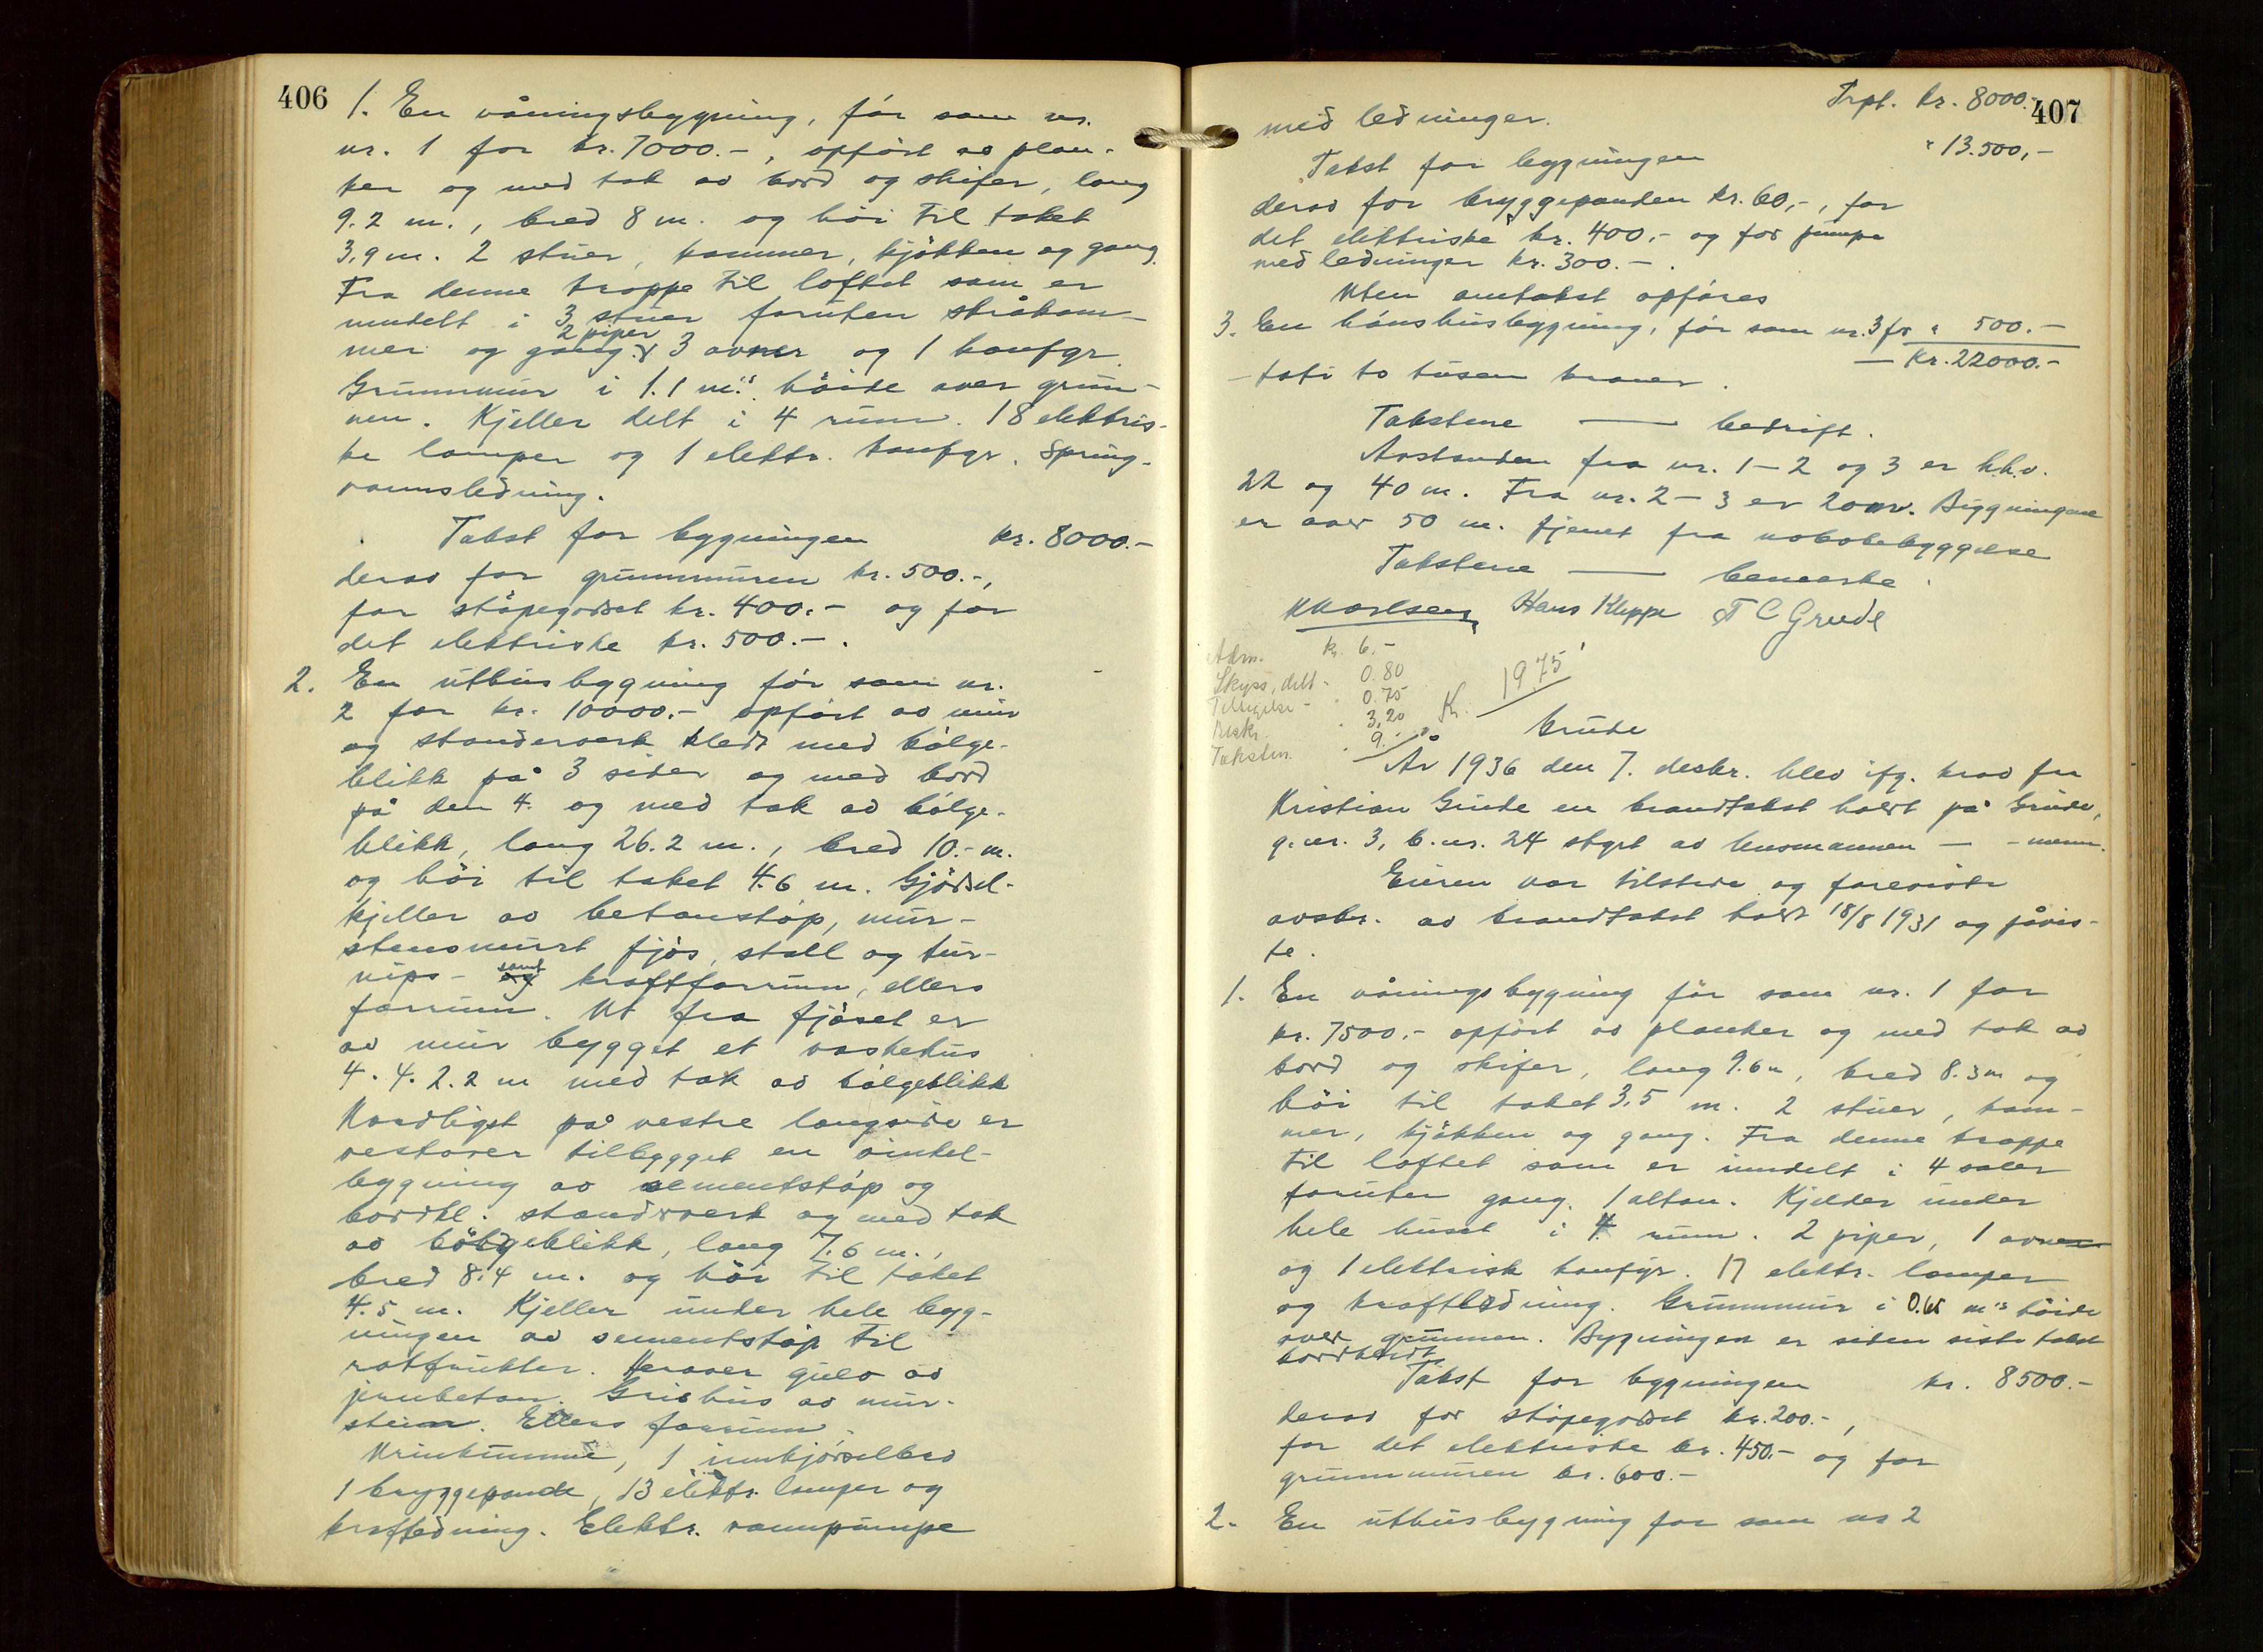 406
1. En våningsbygning, för som nr.
nr. 1 for kr. 7000.-, opfört av plan-
ker og med tak av bord og skifer, lang
9.2 m., bred 8 m. og höi til taket
3,9 m. 2 stuer, kammer, kjökken og gang.
Fra denne trappe til loftet som er
inndelt i 3 stuer foruten skråkam-
2 piper
mer og gang, 3 ovner og 1 komfyr.
Grunnmur i 1.1 m's höide over grun-
nen. Kjeller delt i 4 rum. 18 elektris-
ke lamper og 1 elektr. komfyr. Spring-
vannsledning.
Takst for bygningen kr. 8000.-
derav for grunnmuren kr. 500.-,
for stöpegodset kr. 400.- og for
det elektriske kr. 500.-.
2. En uthusbygning för som nr.
2 for kr. 10000.- opfört av mur
og standerverk kledt med bölge-
blikk på 3 sider og med bord
på den 4. og med tak av bölge-
blikk, lang 26.2 m., bred 10.- m.
og höi til taket 4.6 m. Gjödsel-
kjeller av betonstöp, mur-
stensmurt fjös, stall og tur-
nips- samt kraftforrum, ellers
forrum. Ut fra fjöset er
av mur bygget et vaskehus
4.4.2.2 m med tak av bölgeblikk
Nordligst på vestre langside er
vestover tilbygget en vinkel-
bygning av sementstöp og
bordkl. standverk og med tak
av bölgeblikk, lang 7.6 m.,
bred 8.4 m. og höi til taket
4.5 m. Kjeller under hele byg-
ningen av sementstöp til
rotfrukter. Herover gulv av
jernbeton. Grishus av mur-
stein. Ellers forrum.
Urinkumme, 1 innkjörselbro
1 bryggepande, 13 elektr. lamper og
kraftledning. Elektr. vannpumpe
407
Trpt. kr. 8000.-
med ledninger.
Takst for bygningen " 13.500,-
derav for bryggepanden kr. 60,-, for
det elektriske kr. 400.- og for pumpe
med ledninger kr. 300.-.
Uten omtakst opföres
3. En hönshusbygning, för som nr. 3 for " 500.-
- Kr. 22000.-
- toti to tusen kroner.
Takstene — bedrift.
Avstanden fra nr. 1-2 og 3 er h.h.v.
22 og 40 m. Fra nr. 2-3 er 20 m. Byggningene
er over 50 m. fjernet fra nabobebyggelse
Takstene — bemerke.
Hans Kleppe T C Grude
Adm. kr. 6.-
Skyss, delt - 0.80
Tilsigelse - 0.75
Beskr. " 3.20
Takstm. " 9.-
Kr. 19.75
Grude
År 1936 den 7. desbr. blev ifg. krav fra
Kristian Grude en brandtakst holdt på Grude,
g.nr. 3, b.nr. 24 styrt av lensmannen — -menn.
Eieren var tilstede og foreviste
avskr. av brandtakst holdt 18/8 1931 og påvis-
te.
1. En våningsbygning för som nr. 1 for
kr. 7500.- opfört av planker og med tak av
bord og skifer, lang 9.6 m, bred 8.3 m og
höi til taket 3,5 m. 2 stuer, kam-
mer, kjökken og gang. Fra denne trappe
til loftet som er inndelt i 4 saler
foruten gang. 1 altan. Kjelder under
hele huset i 4 rum. 2 piper, 1 ovn
og 1 elektrisk komfyr. 17 elektr. lamper
og kraftledning. Grunnmur i 0.65 m's höide
over grunnen. Bygningen er siden siste takst
bordkledt
Takst for bygningen kr. 8500.-
derav for stöpegodset kr. 200.-,
for det elektriske kr. 450.- og for
grunnmuren kr. 600.-
2. En uthusbygning for som nr 2